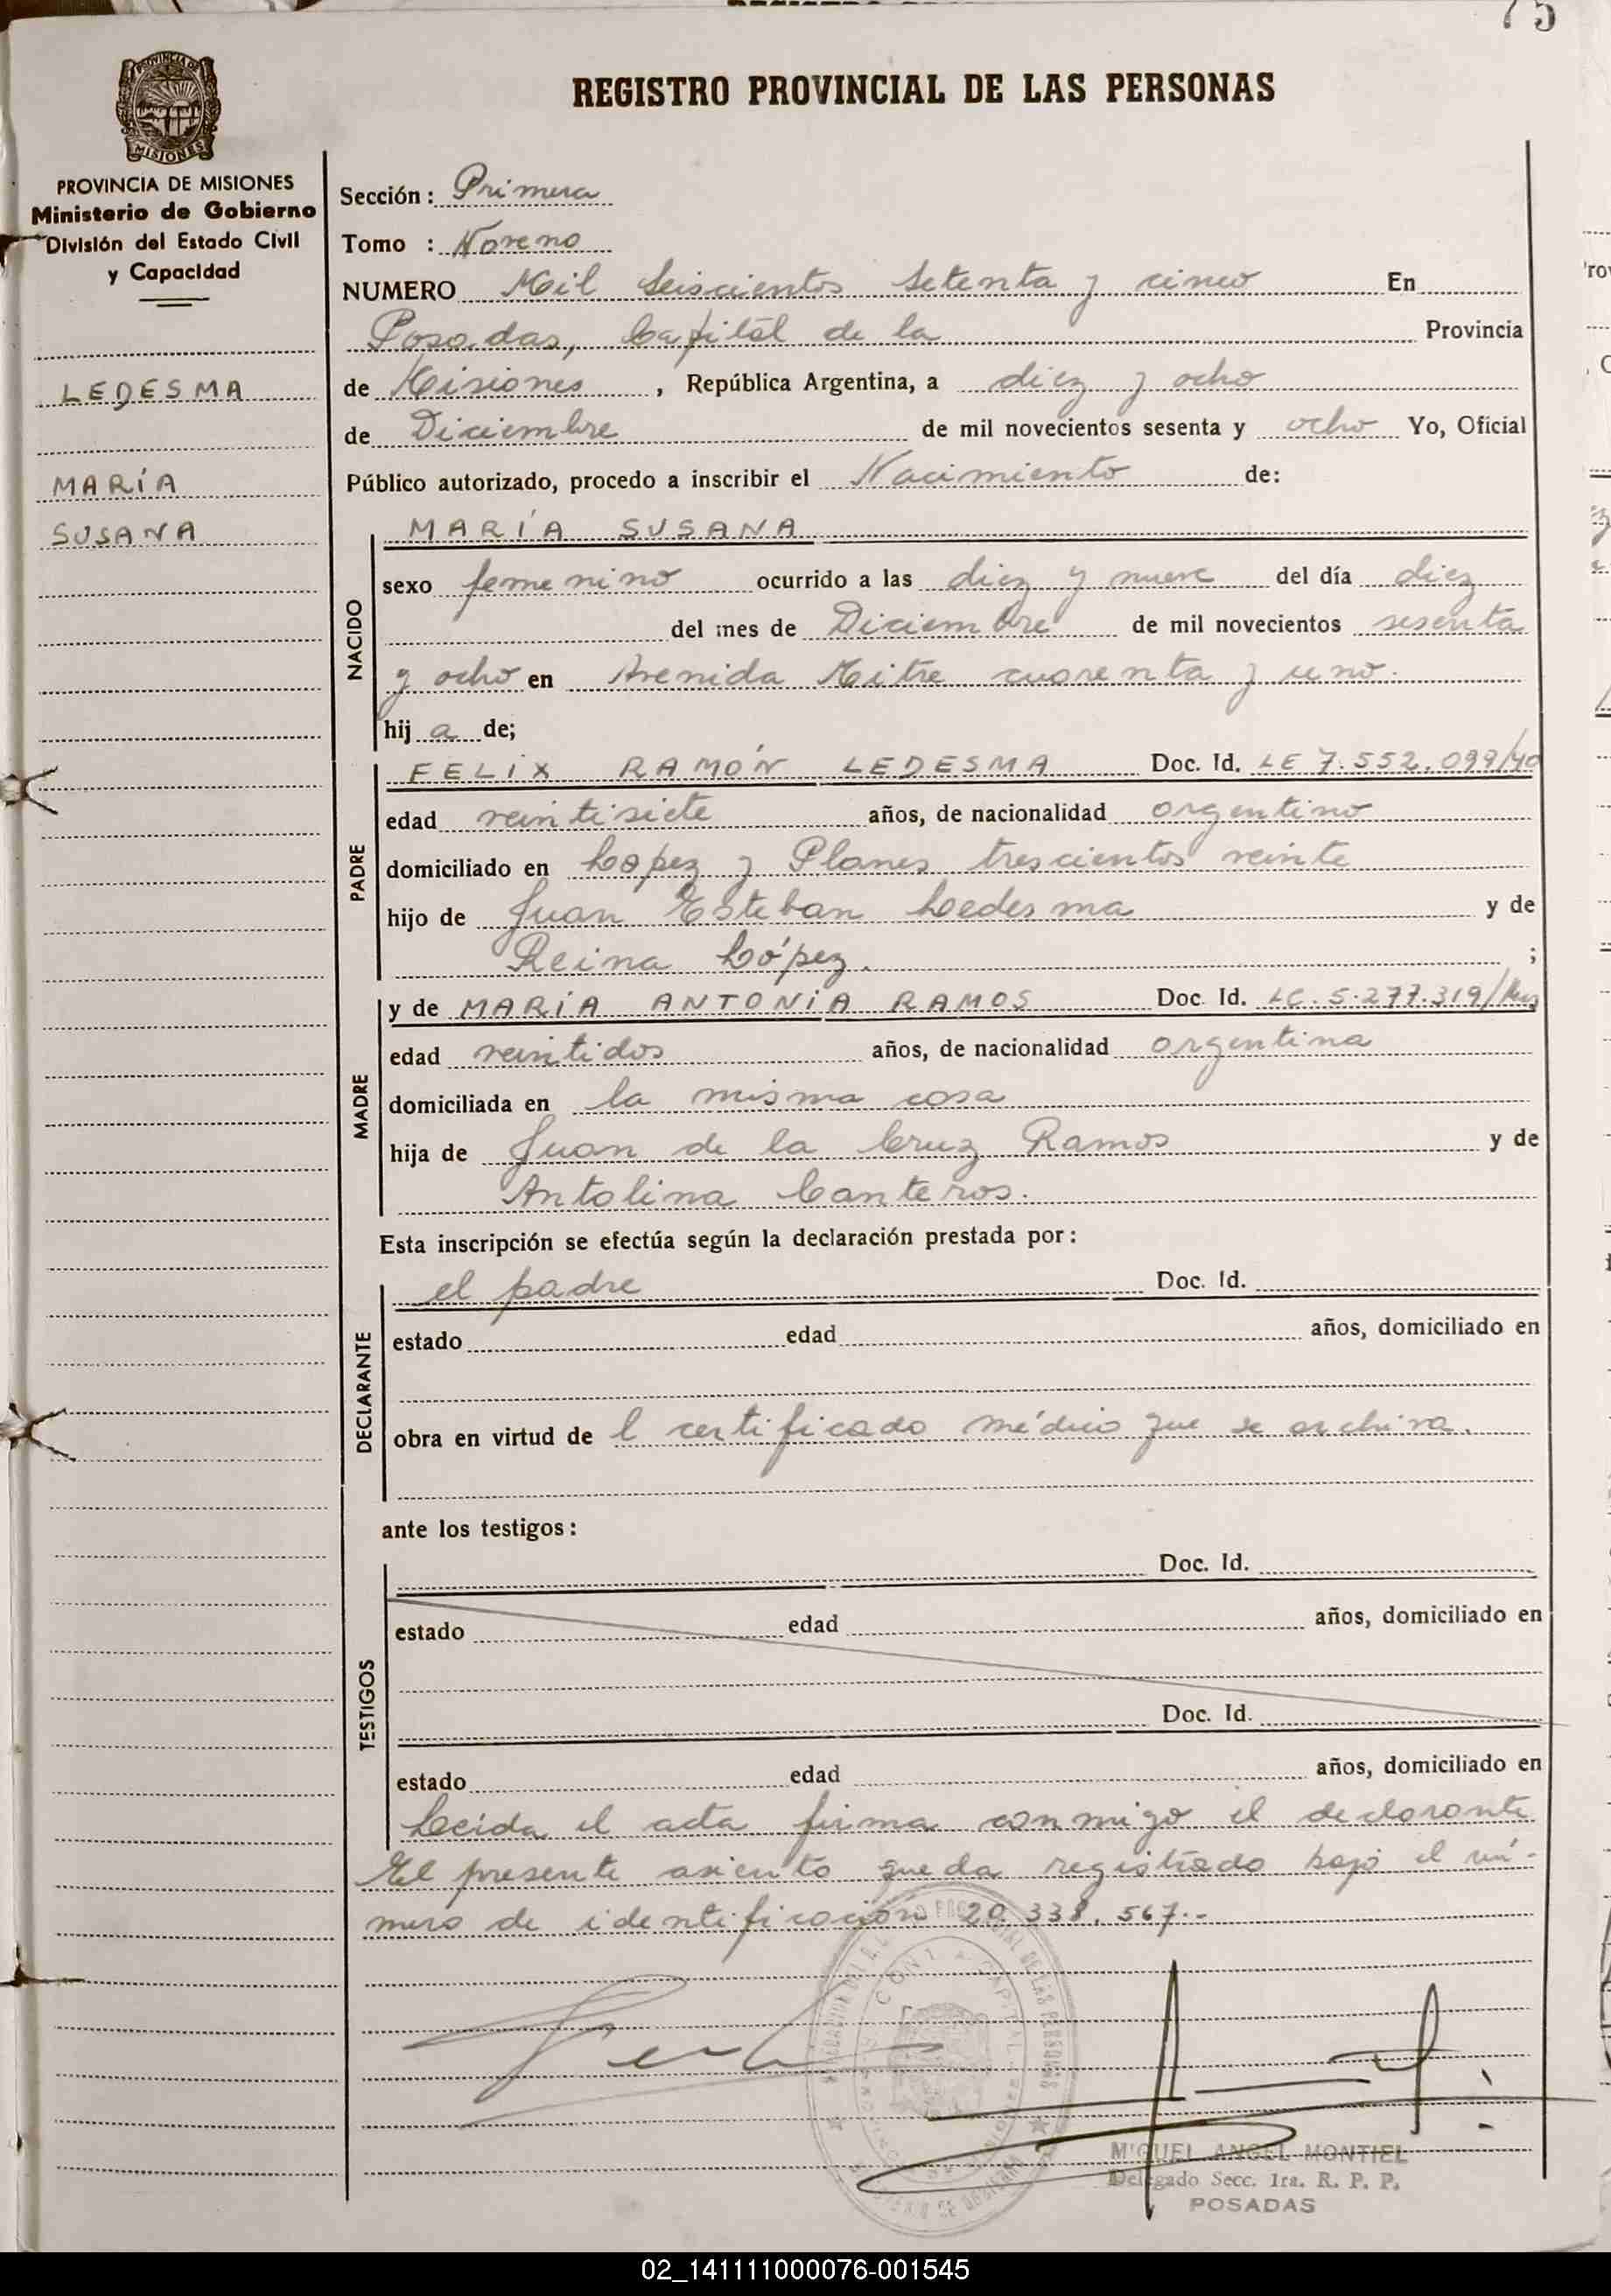 75
REGISTRO PROVINCIAL DE LAS PERSONAS
PROVINCIA DE
MISIONES
PROVINCIA DE MISIONES
Ministerio de Gobierno
División del Estado Civil
y Capacidad
LEDESMA
MARÍA
SUSANA
Sección: Primera
Tomo : Noveno
NUMERO Mil Seiscientos Setenta y cinco En
Posadas, Capital de la Provincia
de Misiones, República Argentina, a diez y ocho
de Diciembre de mil novecientos sesenta y ocho Yo, Oficial
Público autorizado, procedo a inscribir el Nacimiento de:
NACIDO
MARÍA SUSANA
sexo femenino ocurrido a las diez y nueve del día diez
del mes de Diciembre de mil novecientos sesenta
y ocho en Avenida Mitre cuarenta y uno.
hij a de;
PADRE
FELIX RAMÓN LEDESMA Doc. Id. LE 7.552.099/40
edad veintisiete años, de nacionalidad argentino
domiciliado en Lopez y Planes trescientos veinte
hijo de Juan Esteban Ledesma y de
Reina López. ;
MADRE
y de MARÍA ANTONIA RAMOS Doc. Id. LC. 5.277.319/
edad veintidos años, de nacionalidad argentina
domiciliada en la misma casa
hija de Juan de la Cruz Ramos y de
Antolina Canteros.
Esta inscripción se efectúa según la declaración prestada por:
DECLARANTE
el padre Doc. Id.
estado edad años, domiciliado en
obra en virtud de l certificado médico que se archiva.
ante los testigos:
TESTIGOS
Doc. Id.
estado edad años, domiciliado en
Doc. Id.
estado edad años, domiciliado en
Leída el acta firma conmigo el declarante
El presente asiento queda registrado bajo el nú-
mero de identificación 20.338.567.-
MIGUEL ANGEL MONTIEL
Delegado Secc. 1ra. R. P. P.
POSADAS
02_141111000076-001545